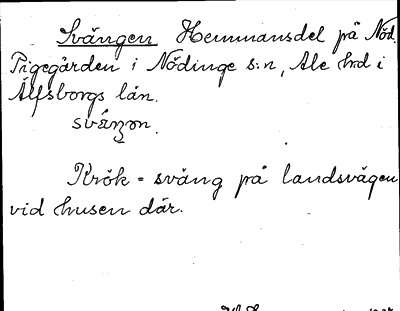 Svängen Hemmansdel på Nöd.
Prigegården i Nödinge s:n, Ale hd i
Älfsborgs län.
Krök = sväng på landsvägen
vid husen där.